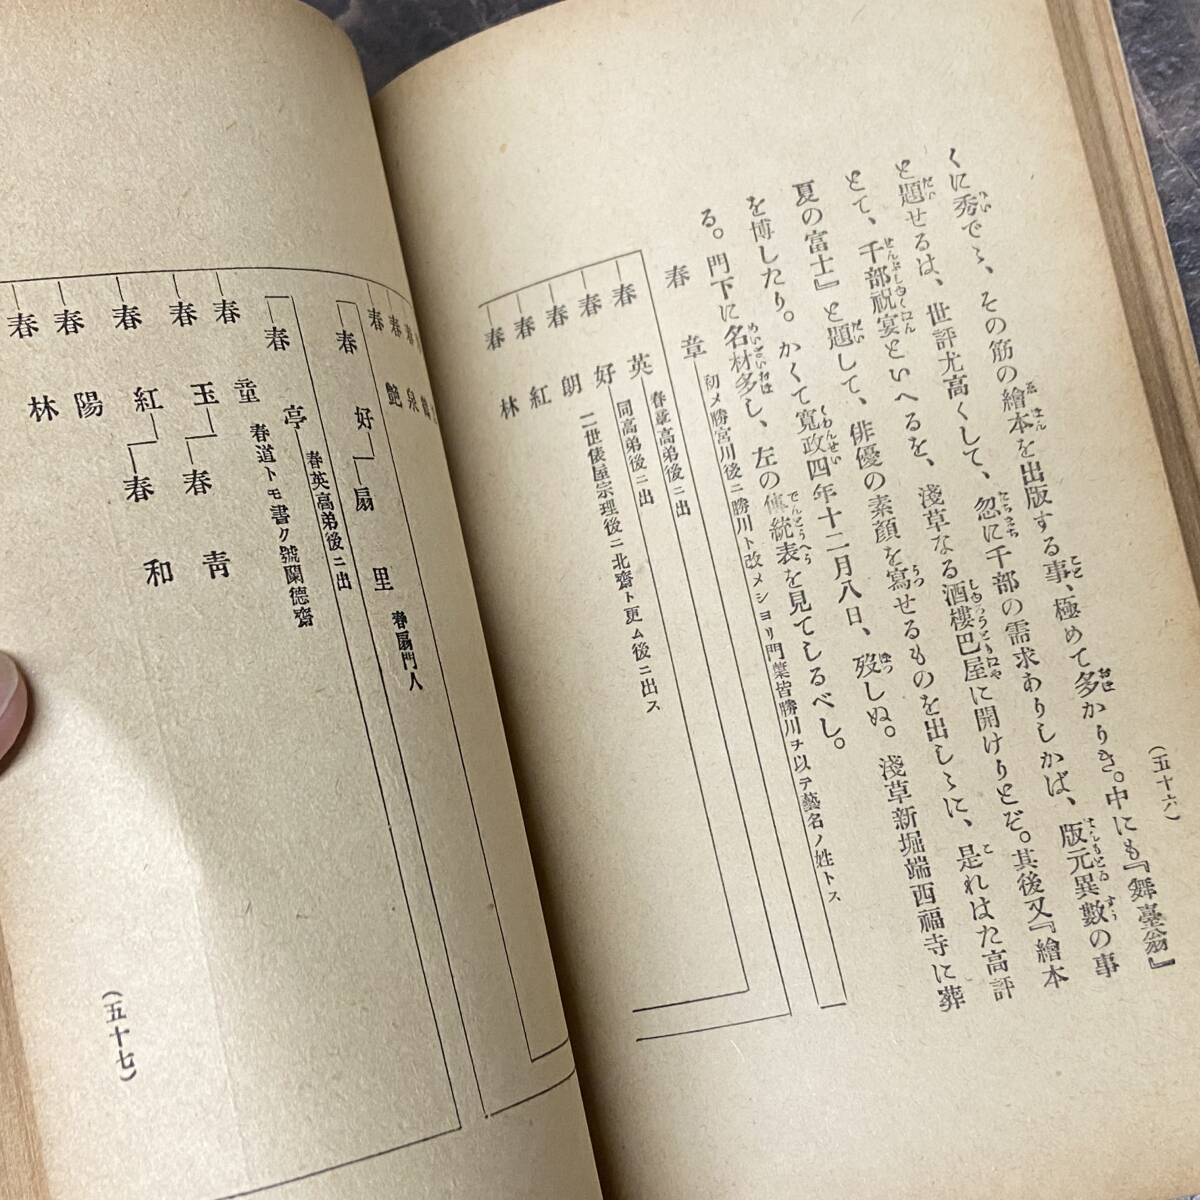 くに秀でゝ、その筋の繪本を出版する事、極めて多かりき。中にも『舞臺翁』
と題せるは、世評尤高くして、忽に千部の需求ありしかば、版元異數の事
とて、千部祝宴といへるを、淺草なる酒樓巴屋に開けりとぞ。其後又『繪本
夏の富士』と題して、俳優の素顔を寫せるものを出しゝに、是れはた高評
を博したり。かくて寬政四年十二月八日、歿しぬ。淺草新堀端西福寺に葬
る。門下に名材多し、左の傳統表を見てしるべし。
春章 初メ勝宮川後ニ勝川ト改メシヨリ門葉皆勝川ヲ以テ藝名ノ姓トス
春英 春章高弟後ニ出
春好 同高弟後ニ出
春朗 二世俵屋宗理後ニ北齋ト更ム後ニ出ス
春紅
春林
(五十六)
春泉
春艶
春好
扇里 春扇門人
春英高弟後ニ出
春亭 春道トモ書ク號蘭德齋
春童
春玉
春青
春紅
春和
春陽
春林
(五十七)